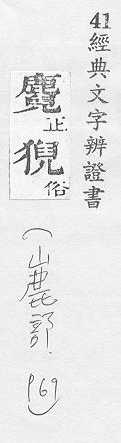 41經典文字辨證書
麑正猊俗
鹿部.